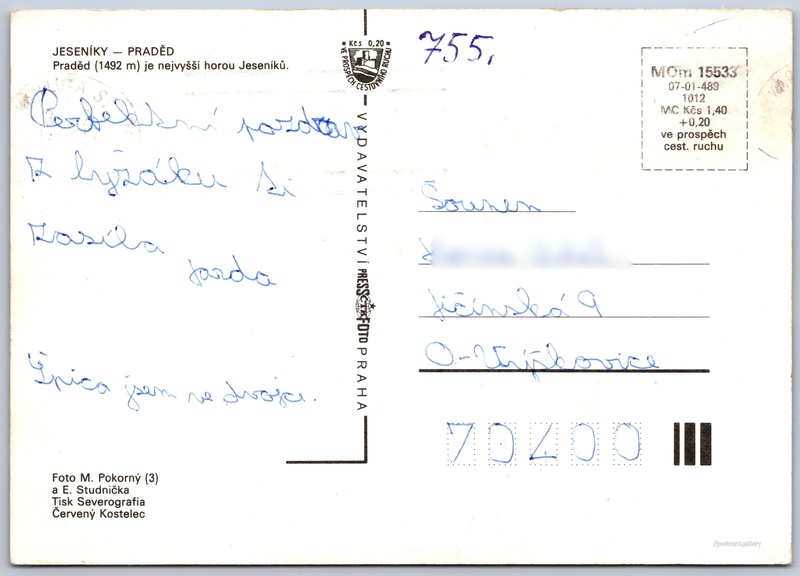 JESENÍKY — PRADĚD
Praděd (1492 m) je nejvyšší horou Jeseníků.
Kčs 0,20
VE PROSPĚCH CESTOVNÍHO RUCHU
755,
MOm 15533
07-01-489
1012
MC Kčs 1,40
+0,20
ve prospěch
cest. ruchu
Perfektní pozdrav
z lyžáku ti
zasílá
Jarda
Špica jsem ve dvojce.
VYDAVATELSTVÍ PRESSFOTO PRAHA
ČTK
Soumen
Jičínská 9
O-Výškovice
70700
Foto M. Pokorný (3)
a E. Studnička
Tisk Severografia
Červený Kostelec